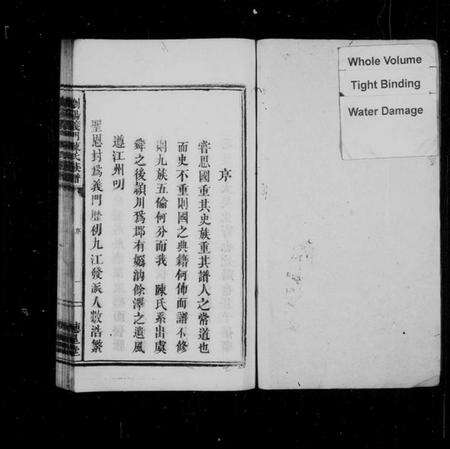 序
嘗思國重其史族重其譜人之常道也
而史不重則國之典籍何佈而譜不修
則九族五倫何分而我 陳氏系出虞
舜之後潁川爲郡有媯汭餘澤之遺風
遵江州明
聖恩封爲義門歷傳九江發派人數浩繁
瀏陽義門陳氏族譜
序
Whole Volume
Tight Binding
Water Damage